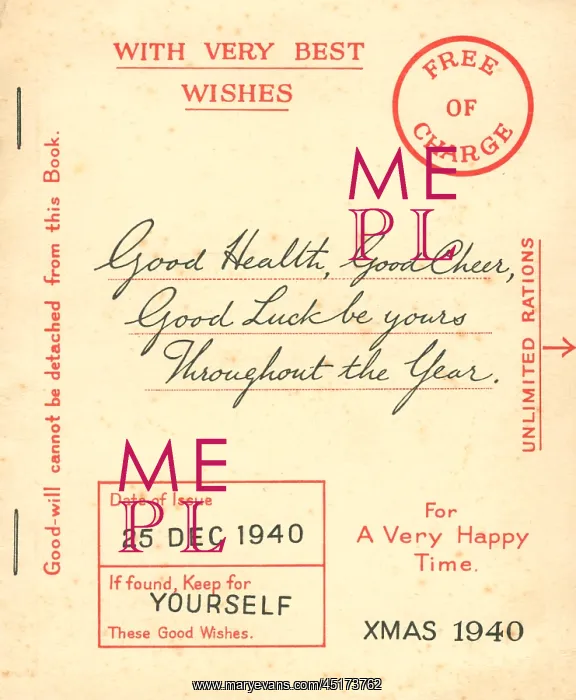 WITH VERY BEST
WISHES
FREE
OF
CHARGE
Good-will cannot be detached from this Book.
ME
PL
Good Health, Good Cheer,
Good Luck be yours
Throughout the Year.
UNLIMITED RATIONS
ME
PL
Date of Issue
25 DEC 1940
If found, Keep for
YOURSELF
These Good Wishes.
For
A Very Happy
Time.
XMAS 1940
www.maryevans.com/45173762